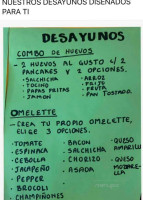 NUESTROS DESAYUNOS DISEÑADOS
PARA TI
DESAYUNOS
COMBO DE HUEVOS
- 2 HUEVOS AL GUSTO c/2
PANCAKES Y 2 OPCIONES.
- SALCHICHA - ARROZ
- TOCINO - FRIJO
- PAPAS FRITAS - FRUTA
- JAMON - PAN TOSTADO
OMELETTE
- CREA TU PROPIO OMELETTE,
ELIGE 3 OPCIONES.
- TOMATE - BACON - QUESO
- ESPINACA - SALCHICHA AMARILLO
- CEBOLLA - CHORIZO - QUESO
- JALAPEÑO - ASADA
- PEPPER
- BROCOLI
- CHAMPIÑONES